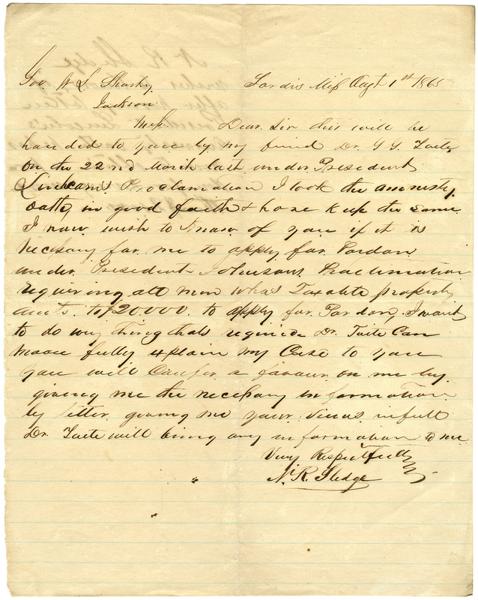 Gov W L Sharkey Sardis Miss Augt 1st 1865
Jackson
Miss Dear Sir this will be
handed to you by my friend Dr. Taite
on the 22nd March last under President
Lincolns Proclamation I took the amnesty
oath, in good faith & have kept the same
I now wish to know of you if it is
necessary for me to apply for Pardon
under President Johnsons Proclamation
requiring all men whos Taxable property
amts. to $20.000. to apply for Pardon, I want
to do any thing thats required Dr. Taite Can
moore fully explain my Case to you
you will Confer a favour on me by
giving me the necessary information
by letter giving me your views in full
Dr Taite will bring any information to me
Very Respectfully
N. R. Sledge